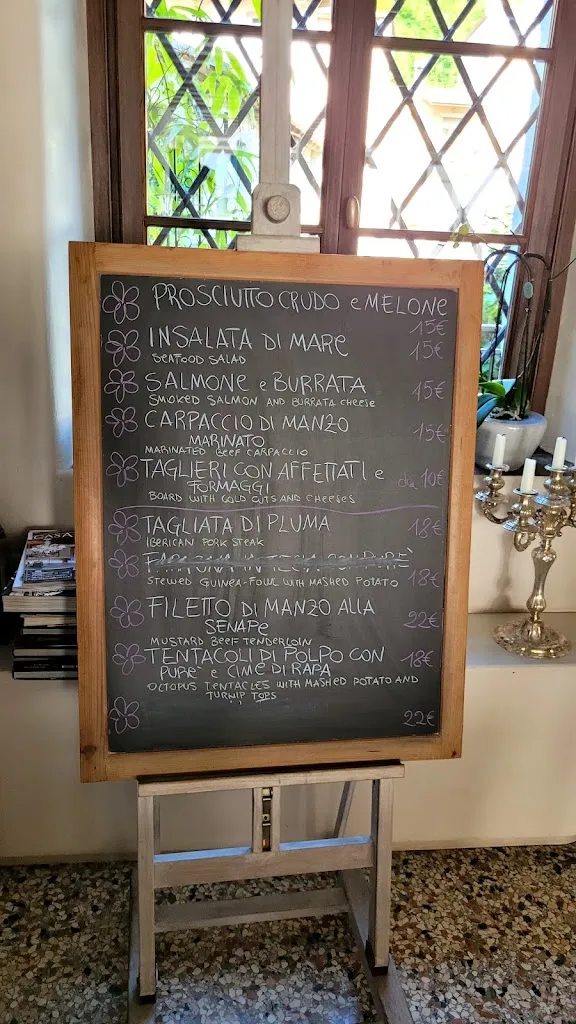 PROSCIUTTO CRUDO e MELONE
15€
INSALATA DI MARE 15€
SEAFOOD SALAD
SALMONE e BURRATA 15€
SMOKED SALMON AND BURRATA CHEESE
CARPACCIO DI MANZO 15€
MARINATO
MARINATED BEEF CARPACCIO
TAGLIERI CON AFFETTATI e da 10€
FORMAGGI
BOARD WITH COLD CUTS AND CHEESES
TAGLIATA DI PLUMA 18€
IBERICAN PORK STEAK
FARAONA IN TECIA CON PURÈ
STEWED GUINEA-FOWL WITH MASHED POTATO 18€
FILETTO DI MANZO ALLA 22€
SENAPE
MUSTARD BEEF TENDERLOIN
TENTACOLI DI POLPO CON 18€
PURE' e CIME DI RAPA
OCTOPUS TENTACLES WITH MASHED POTATO AND
TURNIP TOPS
22€
CASA